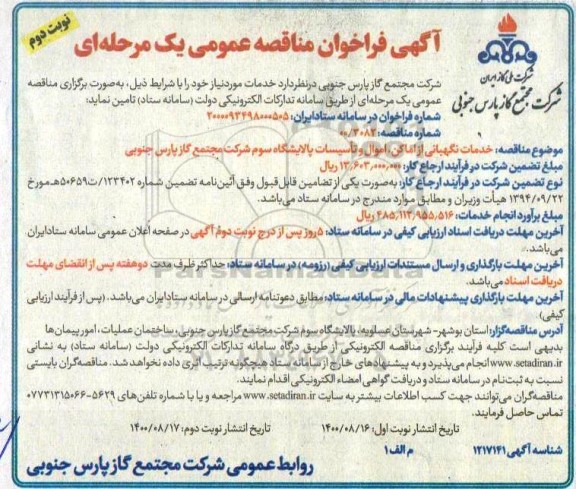 نوبت دوم
آگهی فراخوان مناقصه عمومی یک مرحله‌ای
شرکت ملی گاز ایران
شرکت مجتمع گاز پارس جنوبی
شرکت مجتمع گاز پارس جنوبی درنظر دارد خدمات موردنیاز خود را با شرایط ذیل، به‌صورت برگزاری مناقصه
عمومی یک مرحله‌ای از طریق سامانه تدارکات الکترونیکی دولت (سامانه ستاد) تامین نماید:
شماره فراخوان در سامانه ستادایران: ۲۰۰۰۰۹۳۴۹۸۰۰۰۵۰۵
شماره مناقصه: ۰۰/۳۰۸۲
موضوع مناقصه: خدمات نگهبانی از اماکن، اموال و تأسیسات پالایشگاه سوم شرکت مجتمع گاز پارس جنوبی
مبلغ تضمین شرکت در فرآیند ارجاع کار: ۱۳,۶۰۳,۰۰۰,۰۰۰ ریال
نوع تضمین شرکت در فرآیند ارجاع کار: به‌صورت یکی از تضامین قابل‌قبول وفق آئین‌نامه تضمین شماره ۱۲۳۴۰۲/ت۵۰۶۵۹هـ مورخ
۱۳۹۴/۰۹/۲۲ هیأت وزیران و مطابق موارد مندرج در سامانه ستاد می‌باشد.
مبلغ برآورد انجام خدمات: ۴۸۵,۱۱۳,۹۵۵,۵۱۶ ریال
آخرین مهلت دریافت اسناد ارزیابی کیفی در سامانه ستاد: ۵روز پس از درج نوبت دوم آگهی در صفحه اعلان عمومی سامانه ستادایران
می‌باشد.
آخرین مهلت بارگذاری و ارسال مستندات ارزیابی کیفی (رزومه) در سامانه ستاد: حداکثر ظرف مدت دوهفته پس از انقضای مهلت
دریافت اسناد می‌باشد.
آخرین مهلت بارگذاری پیشنهادات مالی در سامانه ستاد: مطابق دعوتنامه ارسالی در سامانه ستادایران می‌باشد. (پس از فرآیند ارزیابی
کیفی).
آدرس مناقصه‌گزار: استان بوشهر- شهرستان عسلویه، پالایشگاه سوم شرکت مجتمع گاز پارس جنوبی، ساختمان عملیات، امور پیمان‌ها
بدیهی است کلیه فرآیند برگزاری مناقصه الکترونیکی از طریق درگاه سامانه تدارکات الکترونیکی دولت (سامانه ستاد) به نشانی
www.setadiran.ir انجام می‌پذیرد و به پیشنهادهای خارج از سامانه ستاد هیچگونه ترتیب اثری داده نخواهد شد. مناقصه‌گران بایستی
نسبت به ثبت‌نام در سامانه ستاد و دریافت گواهی امضاء الکترونیکی اقدام نمایند.
مناقصه‌گران می‌توانند جهت کسب اطلاعات بیشتر به سایت www.setadiran.ir مراجعه و یا با شماره تلفن‌های ۵۶۲۹-۰۷۷۳۱۳۱۵۰۶۶
تماس حاصل فرمایند.
تاریخ انتشار نوبت اول: ۱۴۰۰/۰۸/۱۶ تاریخ انتشار نوبت دوم: ۱۴۰۰/۰۸/۱۷
شناسه آگهی ۱۲۱۷۱۴۱ م الف ۱
روابط عمومی شرکت مجتمع گاز پارس جنوبی